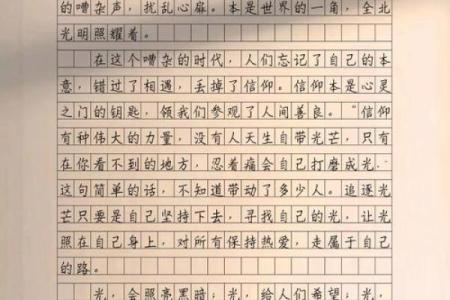 的嘈杂声，扰乱心扉。本是世界的一角，全北
光明照耀着。
在这个嘈杂的时代，人们忘记了自己的本
意，错过了相遇，丢掉了信仰。信仰本是心灵
之门的钥匙，领我们参观了人间善良。“信仰
有种伟大的力量，没有人天生自带光芒，只有
在你看不到的地方，忍着痛会自己打磨成光。
这句简单的话，不知道带动了多少人。追逐光
芒只要是自己坚持下去，寻找自己的光，让光
照在自己身上，对所有保持热爱，走属于自己
的路。
光，会照亮黑暗；光，给人们希望，光，